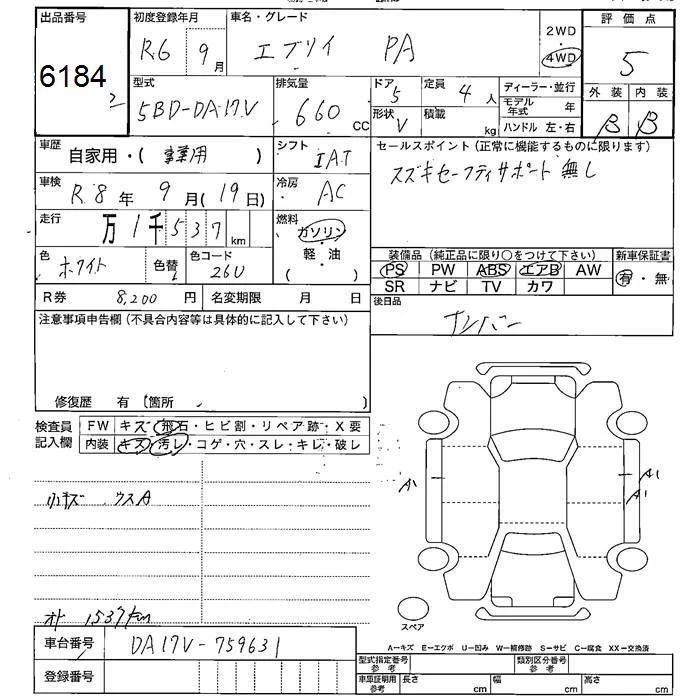 出品番号 初度登録年月 車名・グレード 評価点
R6 9月 エブリイ PA 2WD 4WD 5
6184
2
型式 排気量 ドア 定員 ディーラー・並行 外装 内装
5BD-DA17V 660 CC 5 4人 モデル年式 年 B B
形状 V 積載 kg ハンドル 左・右
車歴 自家用・( 事業用 ) シフト IAT セールスポイント(正常に機能するものに限ります)
スズキセーフティサポート無し
車検 R8年 9月(19日) 冷房 AC
走行 万1千537km 燃料 ガソリン 軽・油 ( )
色 ホワイト 色替 色コード 26U
装備品(純正品に限り○をつけて下さい) 新車保証書
PS PW ABS エアB AW 有・無
SR ナビ TV カワ
R券 8,200円 名変期限 月 日 後日品
ナンバー
注意事項申告欄(不具合内容等は具体的に記入して下さい)
修復歴 有 [箇所 ]
検査員記入欄 FW キズ・飛石・ヒビ割・リペア跡・X要
内装 キズ・汚レ・コゲ・穴・スレ・キレ・破レ
A1 A1
A1
小キズ ウスA
オド 1537km
スペア
車台番号 DA17V-759631
A−キズ E−エクボ U−凹み W−補修跡 S−サビ C−腐食 XX−交換済
型式指定番号 参考 類別区分番号 参考
登録番号
車庫証明用 参考 長さ cm 幅 cm 高さ cm